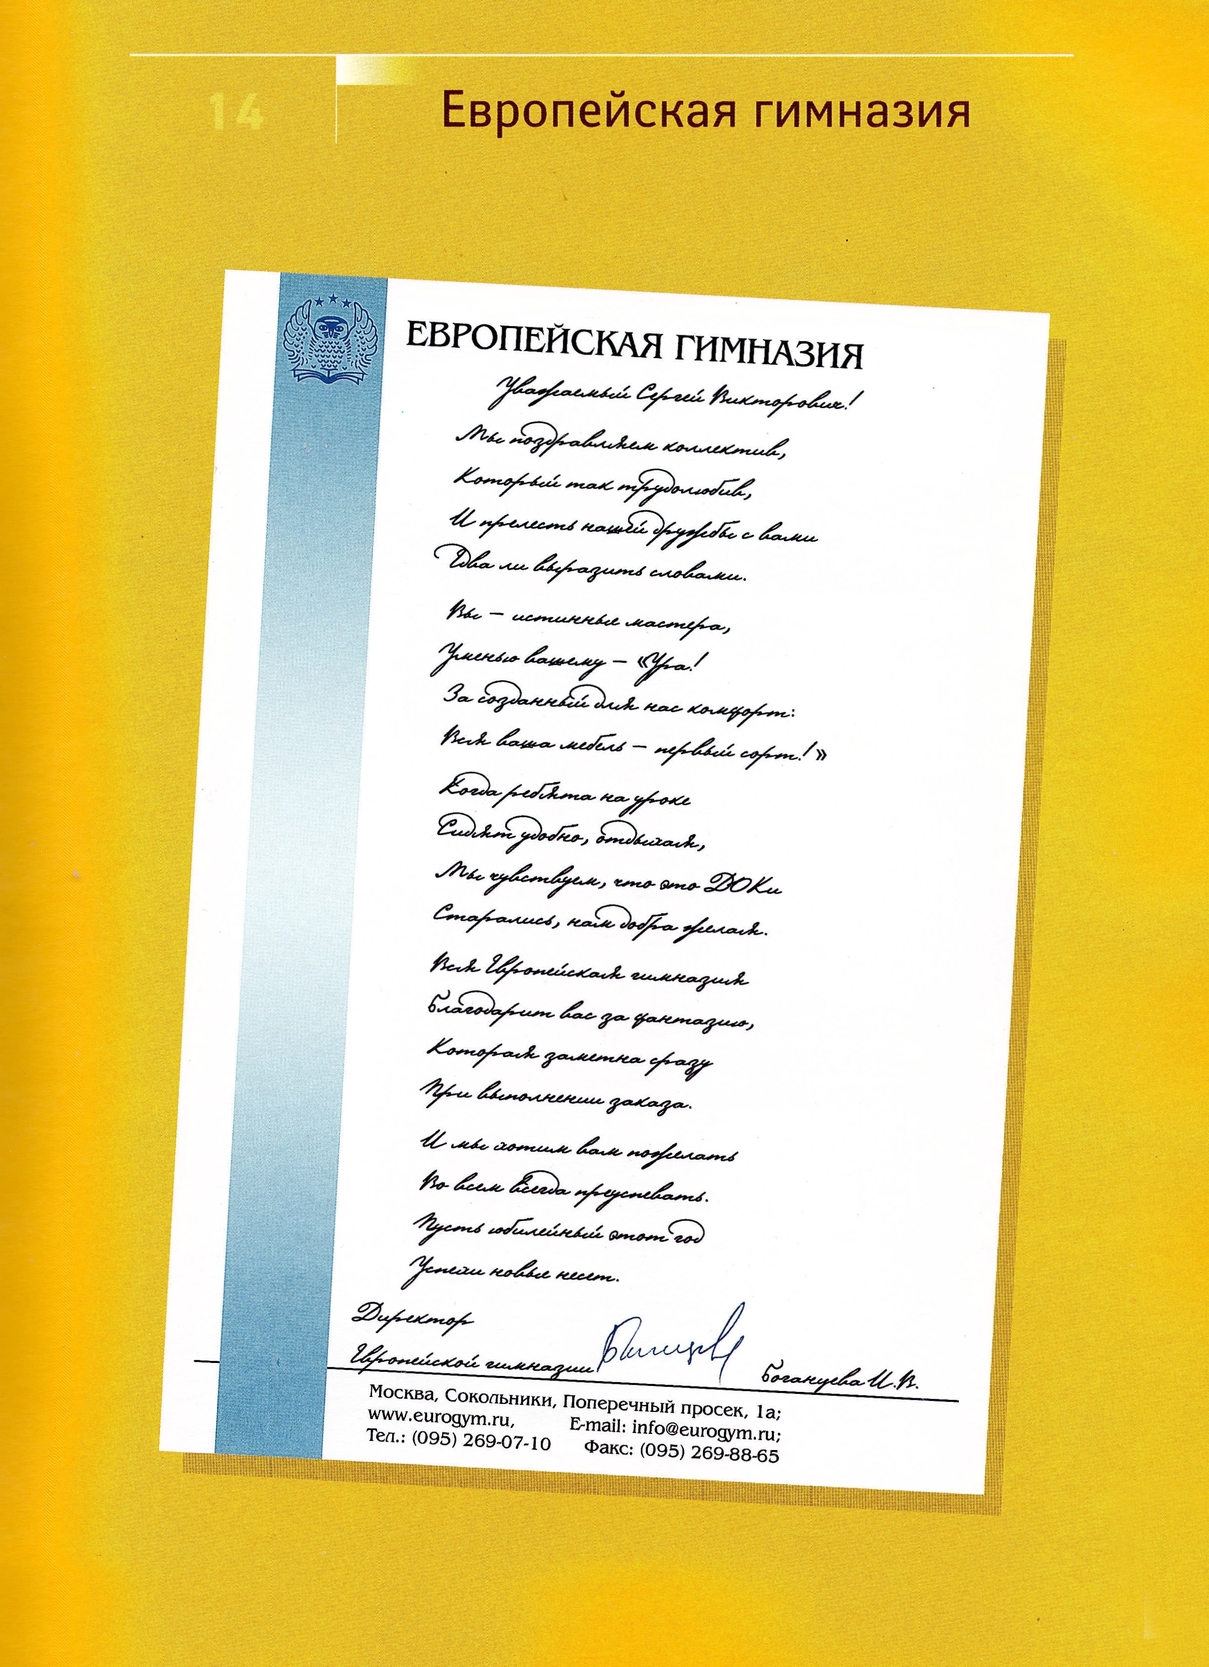 14
Европейская гимназия
ЕВРОПЕЙСКАЯ ГИМНАЗИЯ
Уважаемый Сергей Викторович!
Мы поздравляем коллектив,
Который так трудолюбив,
И прелесть нашей дружбы с вами
Едва ли выразить словами.
Вы – истинные мастера,
Уменью вашему – «Ура!
За созданный для нас комфорт:
Вся ваша мебель – первый сорт!»
Когда ребята на уроке
Сидят удобно, отдыхая,
Мы чувствуем, что это ДОКи
Старались, нам добра желая.
Вся Европейская гимназия
Благодарит вас за фантазию,
Которая заметна сразу
При выполнении заказа.
И мы хотим вам пожелать
Во всем всегда преуспевать.
Пусть юбилейный этот год
Успехи новые несет.
Директор
Европейской гимназии Боганцева И.В.
Москва, Сокольники, Поперечный просек, 1а;
www.eurogym.ru, E-mail: info@eurogym.ru;
Тел.: (095) 269-07-10 Факс: (095) 269-88-65